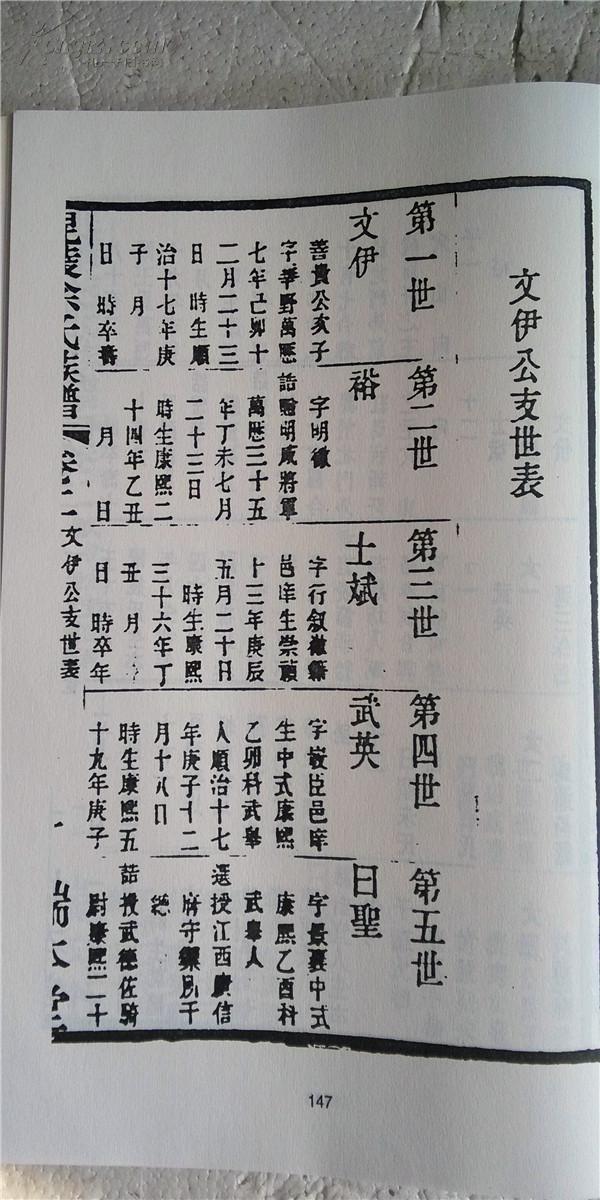 文伊公支世表
第一世
文伊
善貴公亥子
字華野萬曆
七年己卯十
二月二十三
日 時生順
治十七年庚
子 月
日 時卒
第二世
裕
字明徽
誥贈明威將軍
萬曆三十五
年丁未七月
二十三日
時生康熙二
十四年乙丑
月 日
第三世
士斌
字行叙徽籍
邑庠生崇禎
十三年庚辰
五月二十日
時生康熙
三十六年丁
丑 月
日 時卒年
第四世
武英
字 臣邑庠
生中式康熙
乙卯科武舉
人順治十七
年庚子十二
月十八日
時生康熙五
十九年庚子
第五世
日聖
字景襄中式
康熙乙酉科
武舉人
選授江西廣信
府守禦所千
總
誥授武德佐騎
尉康熙二十
毘陵余氏族譜 卷十二 文伊公支世表 一
147